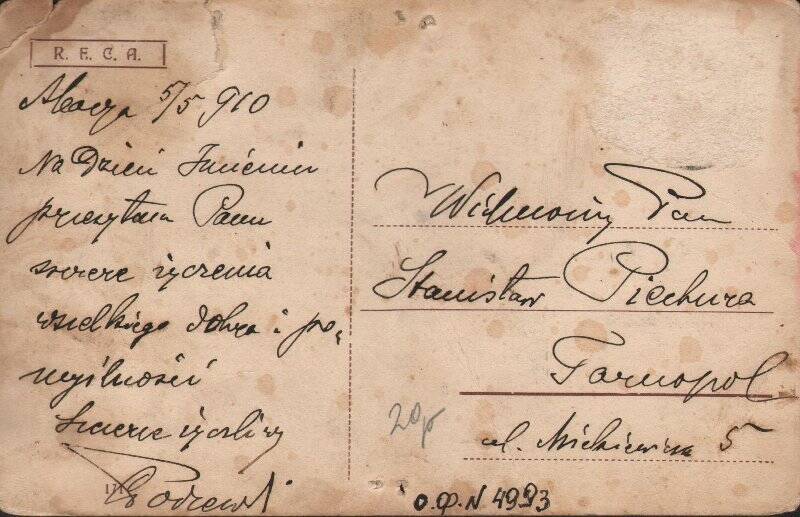 R. F. C. A.
5/5 910
Na Dzień Imienin
przesyłam Panu
szczere życzenia
wszelkiego dobra i po„
myślności
Szczerze życzliwy
Wielmożny Pan
Stanisław Piechura
Tarnopol
ul. Mickiewicza 5
20,-
О.Ф.N 4993